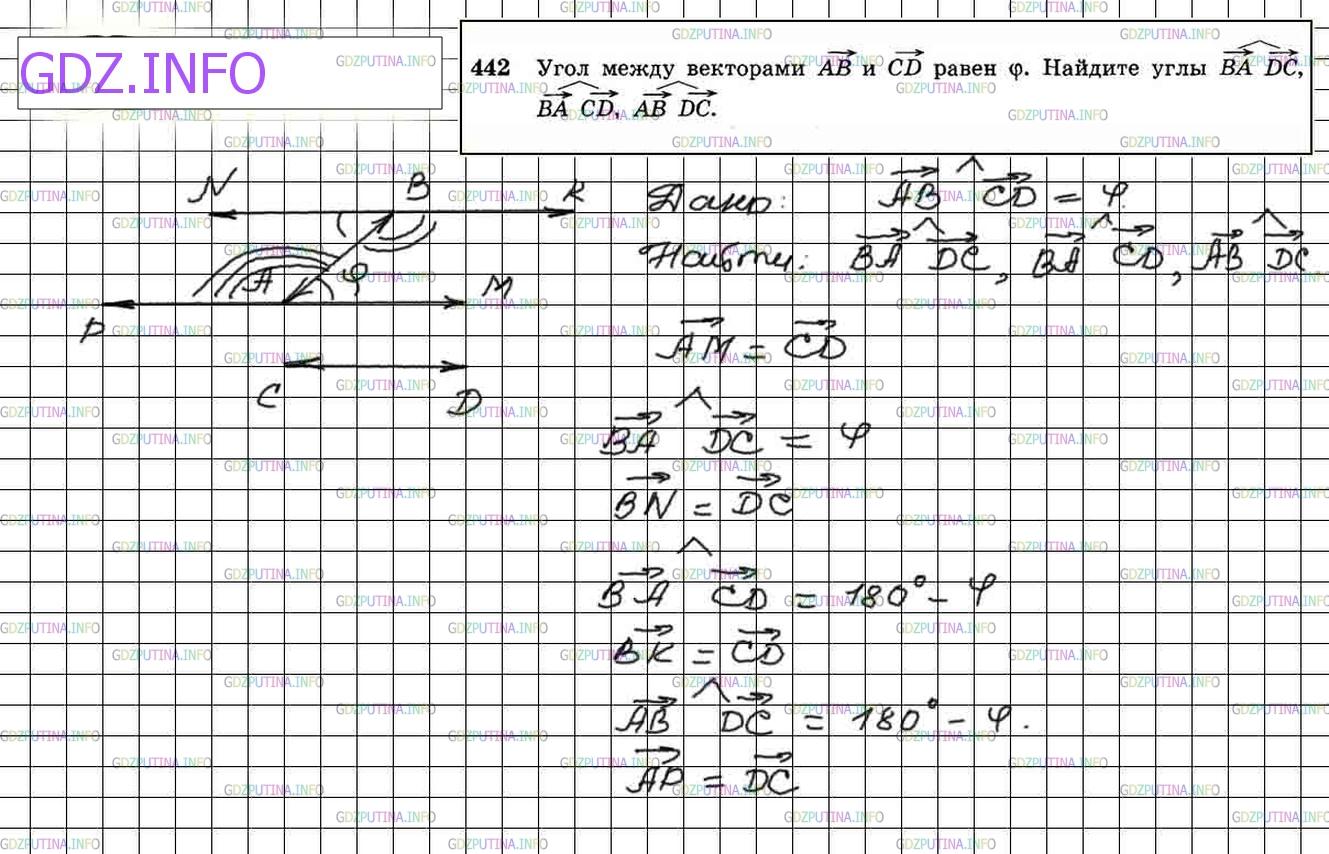 GDZ.INFO
442 Угол между векторами AB и CD равен φ. Найдите углы BA DC,
BA CD, AB DC.
N B K
A φ M
P
C D
Дано: AB CD = φ.
Найти: BA DC, BA CD, AB DC
AM = CD
BA DC = φ
BN = DC
BA CD = 180° - φ
BK = CD
AB DC = 180° - φ.
AP = DC
GDZPUTINA.INFO